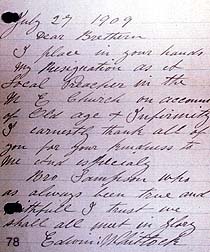 July 27 1909
Dear Brethern
I place in your hands
my Resignation as a
Local Preacher in the
M E Church on account
of Old age & Infirmity
I earnestly thank all of
you for your kindness to
me and especialy
Bro Sampson who
as always been true and
faithfull I trust we
shall all met in glory
78 Edwin Whitlock